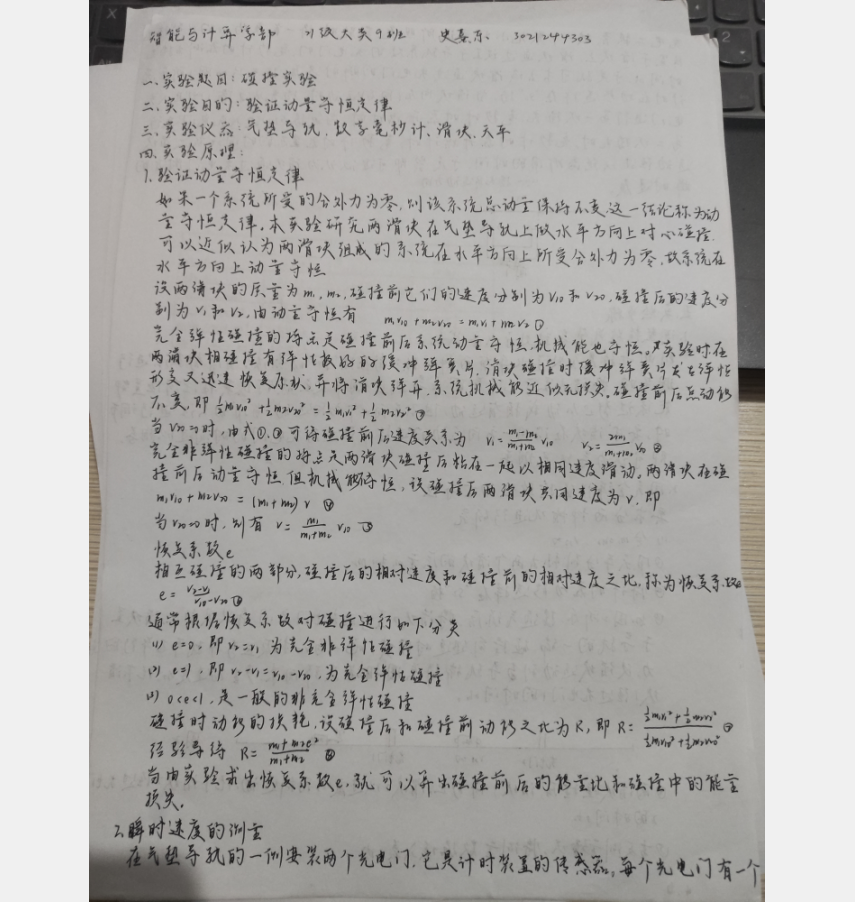 智能与计算学部 21级大类9班 史 3021244303
一、实验题目：碰撞实验
二、实验目的：验证动量守恒定律
三、实验仪器：气垫导轨、数字毫秒计、滑块、天平
四、实验原理：
1.验证动量守恒定律
如果一个系统所受的合外力为零，则该系统总动量保持不变，这一结论称为动
量守恒定律。本实验研究两滑块在气垫导轨上做水平方向上对心碰撞，
可以近似认为两滑块组成的系统在水平方向上所受合外力为零，故系统在
水平方向上动量守恒
设两滑块的质量为m₁、m₂，碰撞前它们的速度分别为V₁₀和V₂₀，碰撞后的速度分
别为V₁和V₂，由动量守恒有 m₁v₁₀+m₂v₂₀=m₁v₁+m₂v₂①
完全弹性碰撞的特点是碰撞前后系统动量守恒，机械能也守恒。实验时在
两滑块相碰撞有弹性极好的缓冲弹簧片，滑块碰撞时缓冲弹簧片发生弹性
形变又迅速恢复原状，并将滑块弹开，系统机械能近似无损失，碰撞前后总动能
不变，即 ½m₁v₁₀²+½m₂v₂₀²=½m₁v₁²+½m₂v₂²②
当V₂₀=0时，由式①、②可得碰撞前后速度关系为 V₁=(m₁-m₂)/(m₁+m₂) V₁₀ V₂=2m₁/(m₁+m₂) V₁₀ ③
完全非弹性碰撞的特点是两滑块碰撞后粘在一起以相同速度滑动。两滑块在碰
撞前后动量守恒但机械能守恒，设碰撞后两滑块共同速度为v，即
m₁v₁₀+m₂v₂₀=(m₁+m₂)v ④
当v₂₀=0时，则有 v=m₁/(m₁+m₂) v₁₀ ⑤
恢复系数e
相互碰撞的两部分，碰撞后的相对速度和碰撞前的相对速度之比，称为恢复系数e
e=(v₂-v₁)/(v₁₀-v₂₀)⑥
通常根据恢复系数对碰撞进行如下分类
(1) e=0，即v₂=v₁为完全非弹性碰撞
(2) e=1，即v₂-v₁=v₁₀-v₂₀，为完全弹性碰撞
(3) 0<e<1，是一般的非完全弹性碰撞
碰撞时动能的损耗，设碰撞后和碰撞前动能之比为R，即R=(½m₁v₁²+½m₂v₂²)/(½m₁v₁₀²+½m₂v₂₀²)⑦
经验导得 R=(m₁+m₂e²)/(m₁+m₂) ⑧
当由实验求出恢复系数e，就可以算出碰撞前后的能量比和碰撞中的能量
损失。
2.瞬时速度的测量
在气垫导轨的一侧安装两个光电门，它是计时装置的传感器。每个光电门有一个